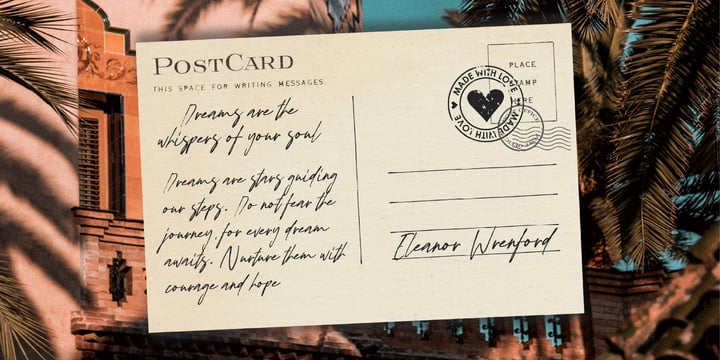 POSTCARD
THIS SPACE FOR WRITING MESSAGES
Dreams are the
whispers of your soul
Dreams are stars guiding
our steps. Do not fear the
journey, for every dream
awaits. Nurture them with
courage and hope
PLACE
STAMP
HERE
MADE WITH LOVE
MADE WITH LOVE
Eleanor Wrenford